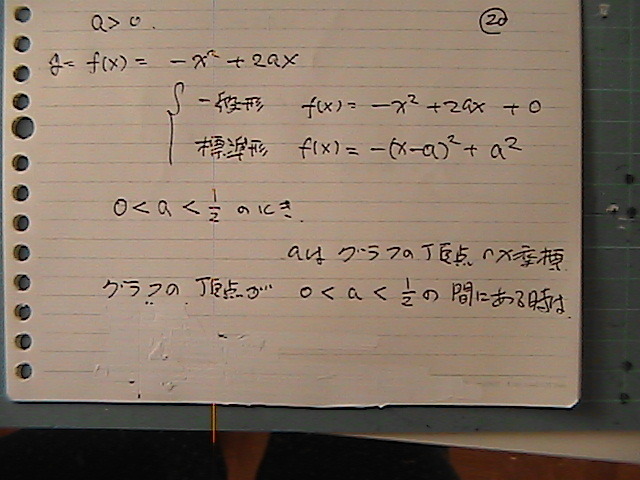 a > 0.
⑳
y = f(x) = -x² + 2ax
一般形 f(x) = -x² + 2ax + 0
標準形 f(x) = -(x-a)² + a²
0 < a < 1/2 のとき.
aは グラフの頂点のx座標
グラフの 頂点が 0 < a < 1/2 の 間にある時は